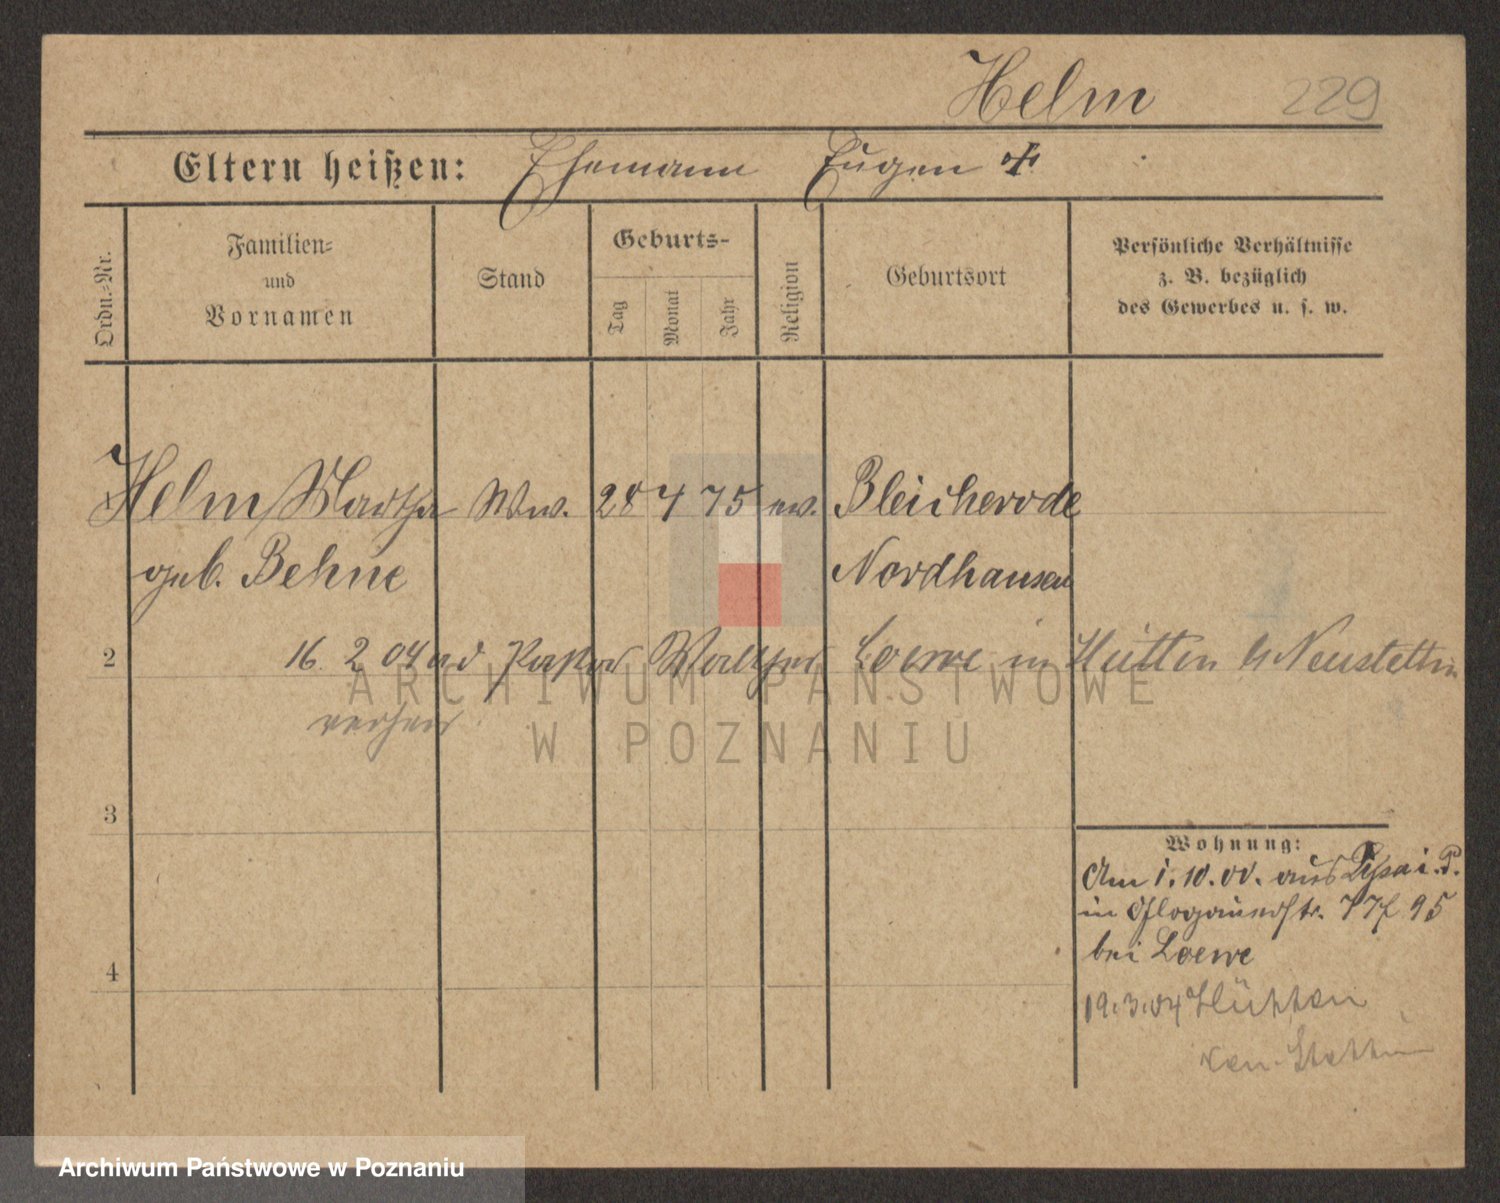 Helm 229
Eltern heißen: Ehemann Eugen
Ordn.-Nr.
Familien-
und
Vornamen
Stand
Geburts-
Tag
Monat
Jahr
Religion
Geburtsort
Persönliche Verhältnisse
z. B. bezüglich
des Gewerbes u. s. w.
Helm Martha Ww. 28 4 75 ev. Bleicherode
geb. Behne Nordhausen
2 16. 2 04 Pastor Walther Loewe in Hütten b Neustettin
verheir
3
Wohnung:
Am 1.10.00. aus Lissa i. P.
in Glogauerstr. 95
bei Loewe
4
19.3.04 Hütten
Neu-Stettin
ARCHIWUM PAŃSTWOWE
W POZNANIU
Archiwum Państwowe w Poznaniu